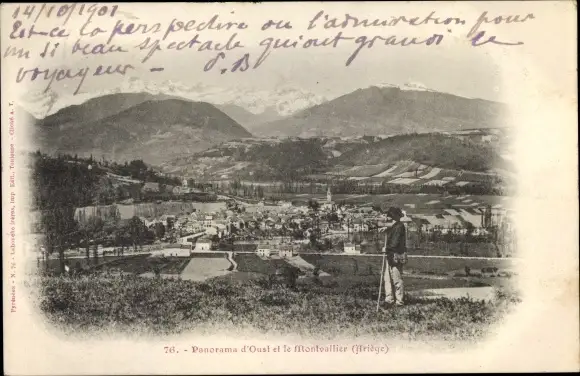 14/10/1901
Est-ce la perspective ou l'admiration pour
un si beau spectacle qui ont grandi le
voyageur — P. B
Pyrénées - N. D. - Labouche frères, imp. Edit., Toulouse — Cliché A. T.
76. - Panorama d'Oust et le Montvallier (Ariège)